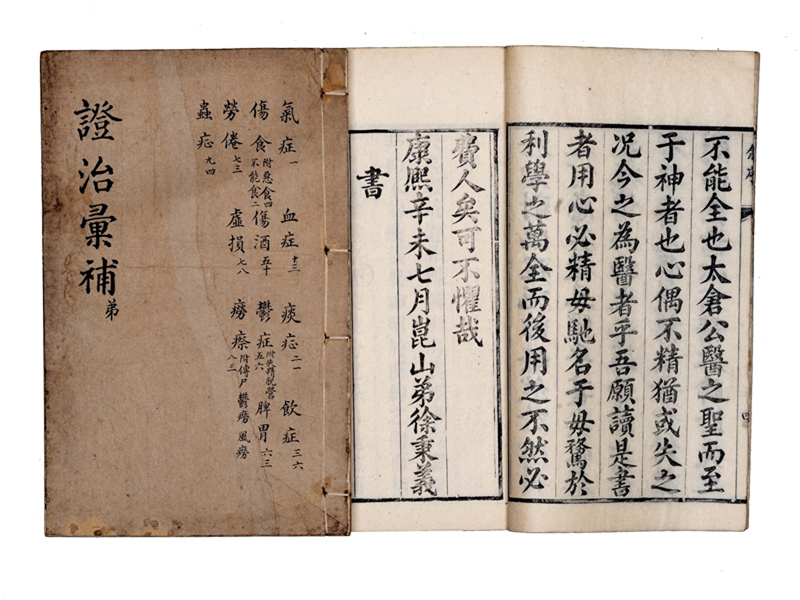 不能全也太倉公醫之聖而至
于神者也心偶不精猶或失之
况今之為醫者乎吾願讀是書
者用心必精毋馳名于毋騖於
利學之萬全而後用之不然必
費人矣可不懼哉
康熙辛未七月崑山弟徐秉義
書
氣症一 血症十三 痰症二一 飲症三六
傷食附惡食四不能食二 傷酒五十 鬱症附失精脫營五六 脾胃六三
勞倦七三 虛損七八 癆瘵附傳尸鬱癆風癆八三
蟲症九四
證治彙補弟